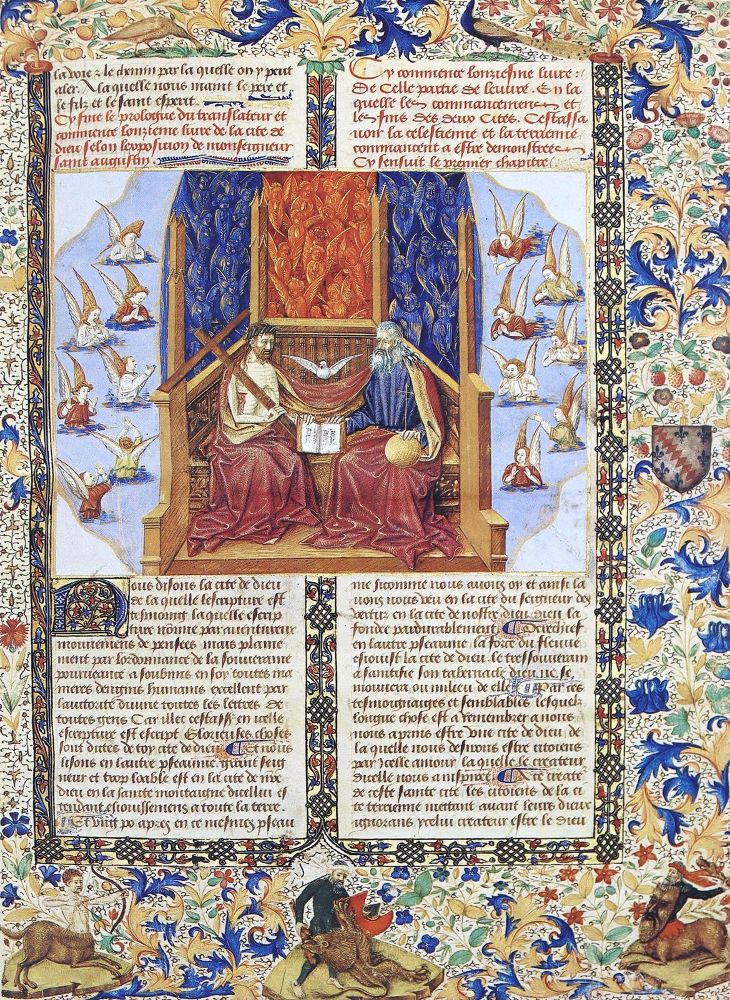 la voie & le chemin par la quelle on y peut
aler. A la quelle nous maint le pere et
le filz et le saint esperit.
Cy fine le prologue du translateur et
commence lonzieme livre de la cite de
dieu selon lexposition de monseigneur
saint augustin.
Cy commence lonziesme livre.
De celle partie de leuvre. En la
quelle les commancemens et
les fins des deux citez. Cestassa
voir la celestienne et la terrienne
commancent a estre demonstrees
Cy sensuit le premier chapitre.
Nous disons la cite de dieu
de la quelle lescripture est
tesmoing la quelle escrip
ture nomie par aventureux
mouvemens de pensees mais plaine
ment par lordonnance de la souveraine
pourveance a soubmis en soy toutes ma
nieres dengins humains excellent par
lautorite divine toutes les lettres de
toutes gens Car illec cestassavoir en icelle
escripture est escript Glorieuses choses
sont dictes de toy cite de dieu Et nous
lisons en lautre pseaume grant seig
neur et trop loable est en la cite de nre
dieu en la sainte montaigne dicellui es
tendant esiouissemens a toute la terre.
Et ung po apres en ce mesmes pseau
me sicomme nous avons oy et ainsi la
vons nous veu en la cite du seigneur des
vertuz en la cite de nostre dieu dieu la
fondee pardurablement. Derechief
en lautre pseaume la force du fleuve
esiouist la cite de dieu. le tressouverain
a saintifie son tabernacle dieu ne se
mouvera ou milieu delle Par ces
tesmoignaiges et semblables lesquelz
longue chose est a remembrer a nous
nous aprins estre une cite de dieu de
la quelle nous desirons estre citoiens
par ycelle amour la quelle le createur
dicelle nous a inspiree Au createur
de ceste sainte cite les citoiens de la ci
te terrienne mettant avant leurs dieux
ignorans ycelui createur estre le dieu